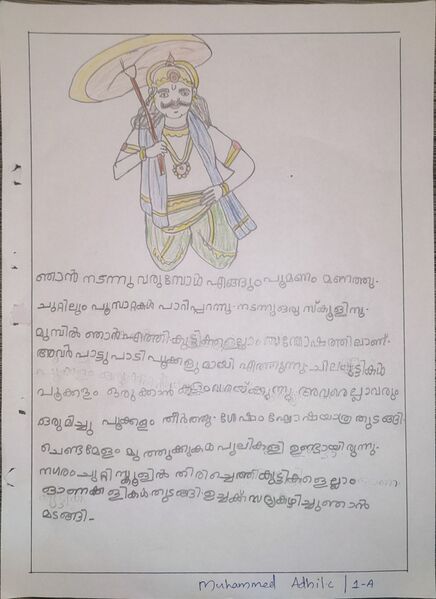 ഞാൻ നടന്നു വരുമ്പോൾ എങ്ങും പൂമണം മണത്തു.
ചുറ്റിലും പൂമ്പാറ്റകൾ പാറിപ്പറന്നു. നടന്നു ഒരു സ്കൂളിനു
മുമ്പിൽ ഞാൻ എത്തി. കുട്ടികളെല്ലാം സന്തോഷത്തിലാണ്.
അവർ പാട്ടു പാടി പൂക്കളുമായി എത്തുന്നു. ചില കുട്ടികൾ
പൂക്കളം ഒരുക്കാൻ കളം വരയ്ക്കുന്നു. അവരെല്ലാവരും
ഒരുമിച്ചു പൂക്കളം തീർത്തു. ശേഷം ഘോഷയാത്ര തുടങ്ങി.
ചെണ്ടമേളം മുത്തുക്കുട പുലികളി ഉണ്ടായിരുന്നു.
നഗരം ചുറ്റി സ്കൂളിൽ തിരിച്ചെത്തി കുട്ടികളെല്ലാം
ഓണക്കളികൾ തുടങ്ങി. ഉച്ചക്ക് സദ്യ കഴിച്ചു ഞാൻ
മടങ്ങി.
Muhammed Adhil.c / 1-A